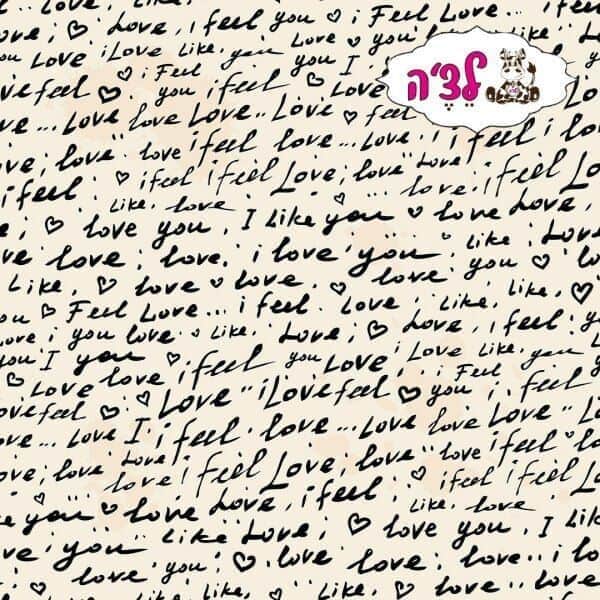 i Love, i feel you ♡ i Feel Love...
ove i ♡ Love, i feel you ♡ i Feel Love... i feel
you Love i Love Like, you Love ♡ you
לצ'ה
♡ i Feel you I
ove feel ♡ you i feel ♡
ve... Love love Love.. Love ♡ feel
ove; love" love i feel love... Love. i i feel i lo
i feel; ♡ i feel i feel Love; love" Love i
Like, love ♡ ... love. i feel Lo
e; ♡ love you, I Like you ♡ love Love,
ve love; love. i love you... Like; Love
Like, ♡ love ♡ love. ♡ love you ♡ lo
ou ♡ Feel Love... i feel. Love. Like, like, ♡
ove i you love ♡ Like, Love; ♡ Love, i feel. yo
you I you ♡ i feel you Love i Love Like, you Love
♡ Love love i feel ♡ i Feel
ove feel ♡ Love" i Love feel ♡ you i feel
ve... Love I i feel. love... Love love Love.. Lo
ove; love; Love i feel Love; love" love i feel lo
love i feel ♡ i feel i feel L
♡ you ♡ love Love, i feel; Like, love
ke you" Like Love; ♡ love you, I Lik
ve you" you; ♡ love love; love.. i lo
♡ love Like, Like, ♡ Like, ♡ love.. love